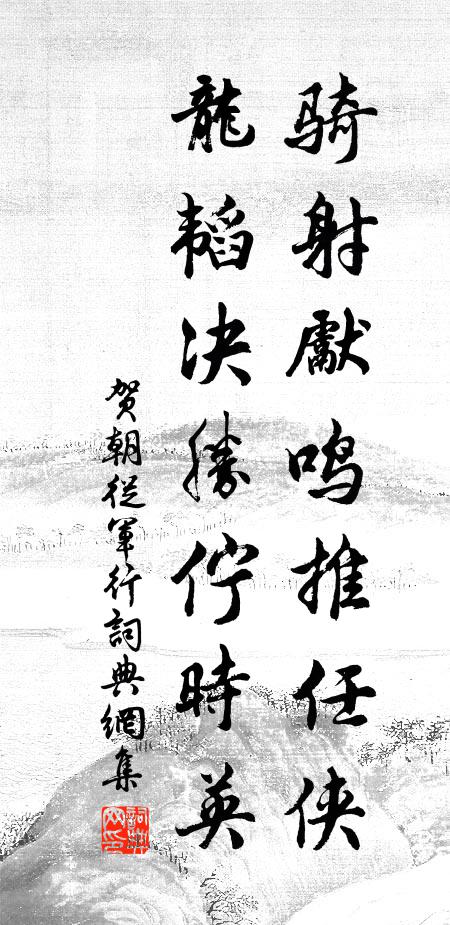 骑射獻鸣推任侠
龍韬决勝佇時英
贺朝從軍行詞典網集
詞典网印